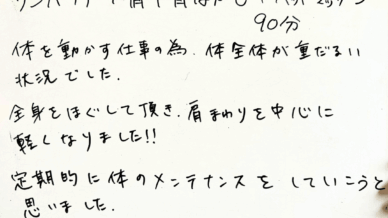 90分
体を動かす仕事の為、体全体が重だるい
状況でした.
全身をほぐして頂き、肩まわりを中心に
軽くなりました!!
定期的に体のメンテナンスをしていこうと
思いました.